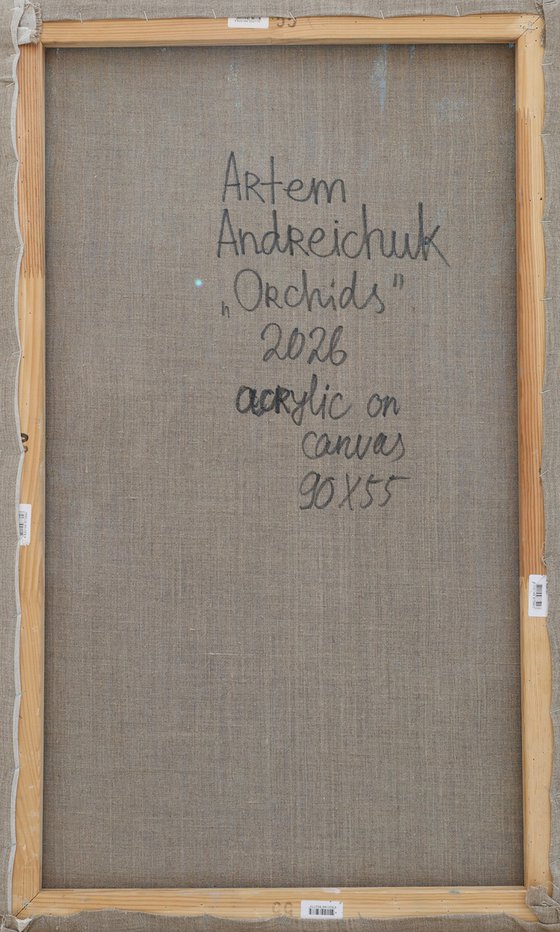 55
Artem
Andreichuk
„Orchids"
2026
acrylic on
canvas
90X55